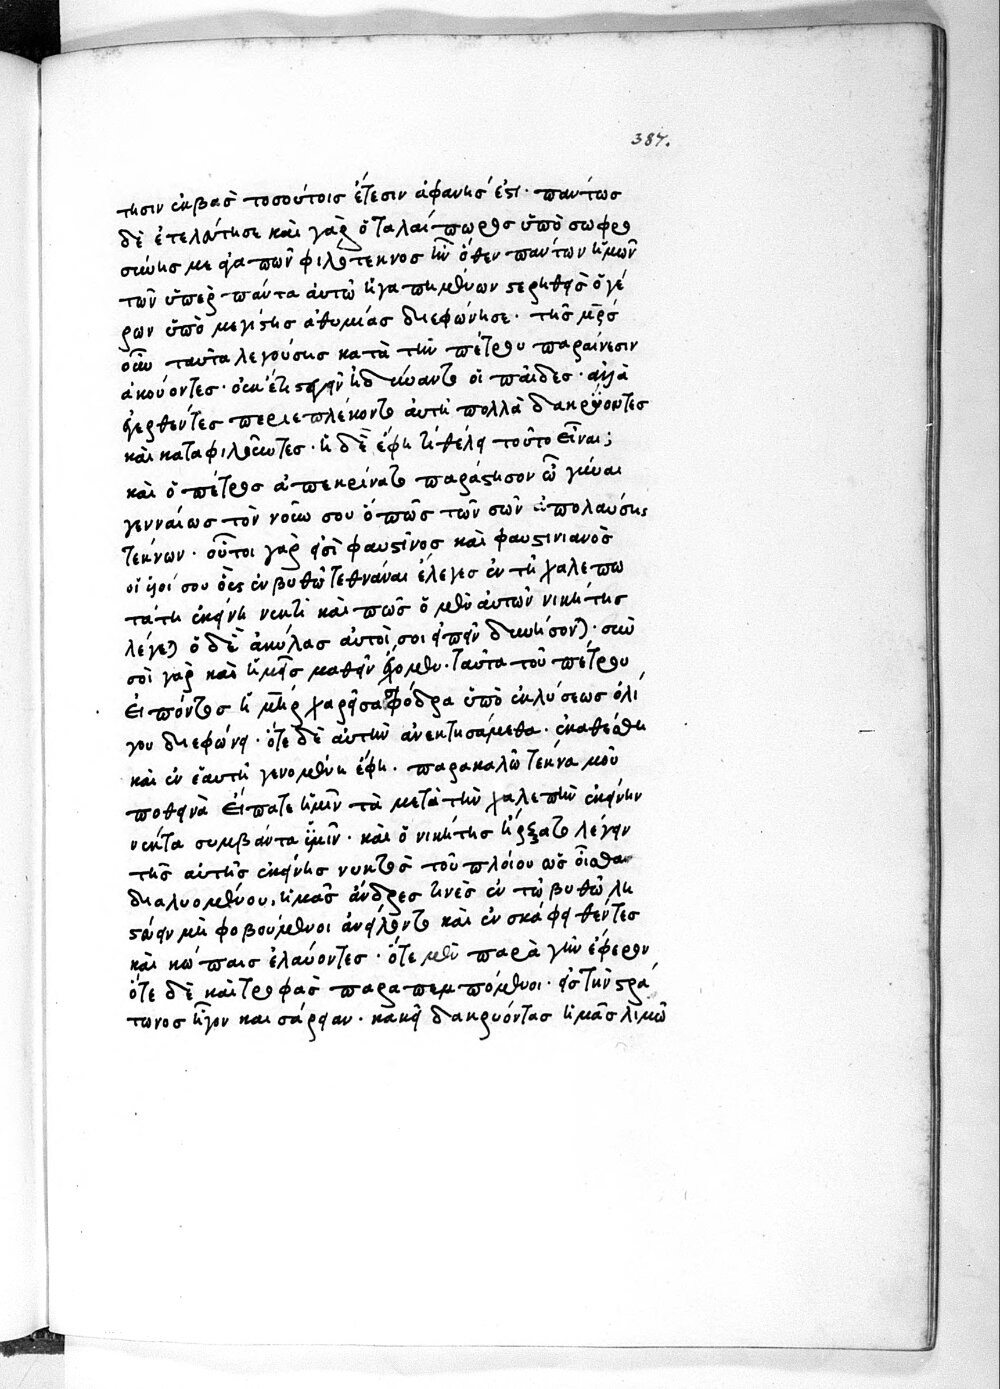 387.
τησιν ἐκβὰς τοσούτοις ἔτεσιν ἀφανής ἐστι· πάντως
δὲ ἐτελεύτησε καὶ γὰρ ὁ ταλαίπωρος ὑπὸ σωφρο
σύνης με ἀγαπῶν φιλότεκνος ἦν ὅθεν πάντων ἡμῶν
τῶν ὑπὲρ πάντα αὐτῷ ἠγαπημένων στερηθεὶς ὁ γέ
ρων ὑπὸ μεγίστης ἀθυμίας διεφώνησε· τῆς μητρός
οὖν ταῦτα λεγούσης κατὰ τὴν πέτρου παραίνεσιν
ἀκούοντες· οὐκέτι στέγειν ἠδύναντο οἱ παῖδες· ἀλλὰ
ἐγερθέντες περιεπλέκοντο αὐτῇ πολλὰ δακρύοντες
καὶ καταφιλοῦντες· ἡ δὲ ἔφη τί θέλει τοῦτο εἶναι;
καὶ ὁ πέτρος ἀπεκρίνατο παράστησον ὦ γύναι
γενναίως τὸν νοῦν σου ὅπως τῶν σῶν ἀπολαύσῃς
τέκνων· οὗτοι γὰρ εἰσὶ φαυστῖνος καὶ φαυστινιανὸς
οἱ υἱοί σου οὓς ἐν βυθῷ τεθνάναι ἔλεγες ἐν τῇ χαλεπω
τάτῃ ἐκείνῃ νυκτὶ καὶ πῶς ὁ μὲν αὐτῶν νικήτης
λέγεται ὁ δὲ ἀκύλας αὐτοί σοι εἰπεῖν δυνήσονται· σὺν
σοὶ γὰρ καὶ ἡμεῖς μαθεῖν ἔχομεν· ταῦτα τοῦ πέτρου
εἰπόντος ἡ μήτηρ χαρεῖσα σφόδρα ὑπὸ ἐκλύσεως ὀλί
γου διεφώνει· ὅτε δὲ αὐτὴν ἀνεκτησάμεθα· ἐκαθέσθη
καὶ ἐν ἑαυτῇ γενομένη ἔφη· παρακαλῶ τέκνα μου
ποθεινὰ εἴπατε ἡμῖν τὰ μετὰ τὴν χαλεπὴν ἐκείνην
νύκτα συμβάντα ὑμῖν· καὶ ὁ νικήτης ἤρξατο λέγειν
τῆς αὐτῆς ἐκείνης νυκτὸς τοῦ πλοίου ὡς οἶσθα
διαλυομένου, ἡμᾶς ἄνδρες τινὲς ἐν τῷ βυθῷ λη
στεύειν μὴ φοβούμενοι ἀνείλοντο καὶ ἐν σκάφει θέντες
καὶ κώπαις ἐλαύοντες· ὅτε μὲν παρὰ γῆν ἔφερον
ὅτε δὲ καὶ τροφὰς παραπεμπόμενοι· εἰς τὴν στρά
τωνος ἦγον καισάρειαν· κἀκεῖ δακρυόντας ἡμᾶς λιμῷ